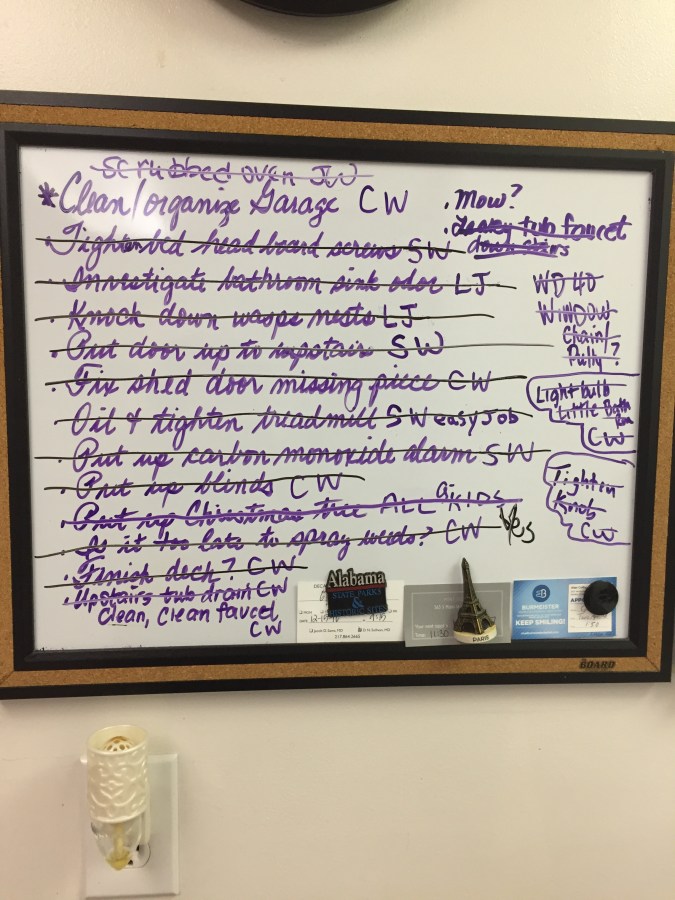 Scrubbed oven JW
*Clean/organize Garage CW
. Tightenbed head board screws SW
. Investigate bathroom sink odor LJ
. Knock down wasps nests LJ
. Put door up to upstairs SW
. Fix shed door missing piece CW
. Oil & tighten treadmill SW easy Job
. Put up carbon monoxide alarm SW
. Put up blinds CW
. Put up Christmas tree ALL KIDS
. Is it too late to spray weeds? CW
. Finish deck? CW
. Upstairs tub drain CW
clean, clean faucet
CW
. Mow?
. Leaky tub faucet
down stairs
WD 40
Window
Chain/
Pully?
Light bulb
Little Bath
Rm
CW
Tighten
Knob
CW
Alabama
STATE PARKS
&
HISTORIC SITES
PARIS
11:30
BURMEISTER
KEEP SMILING!
BOARD